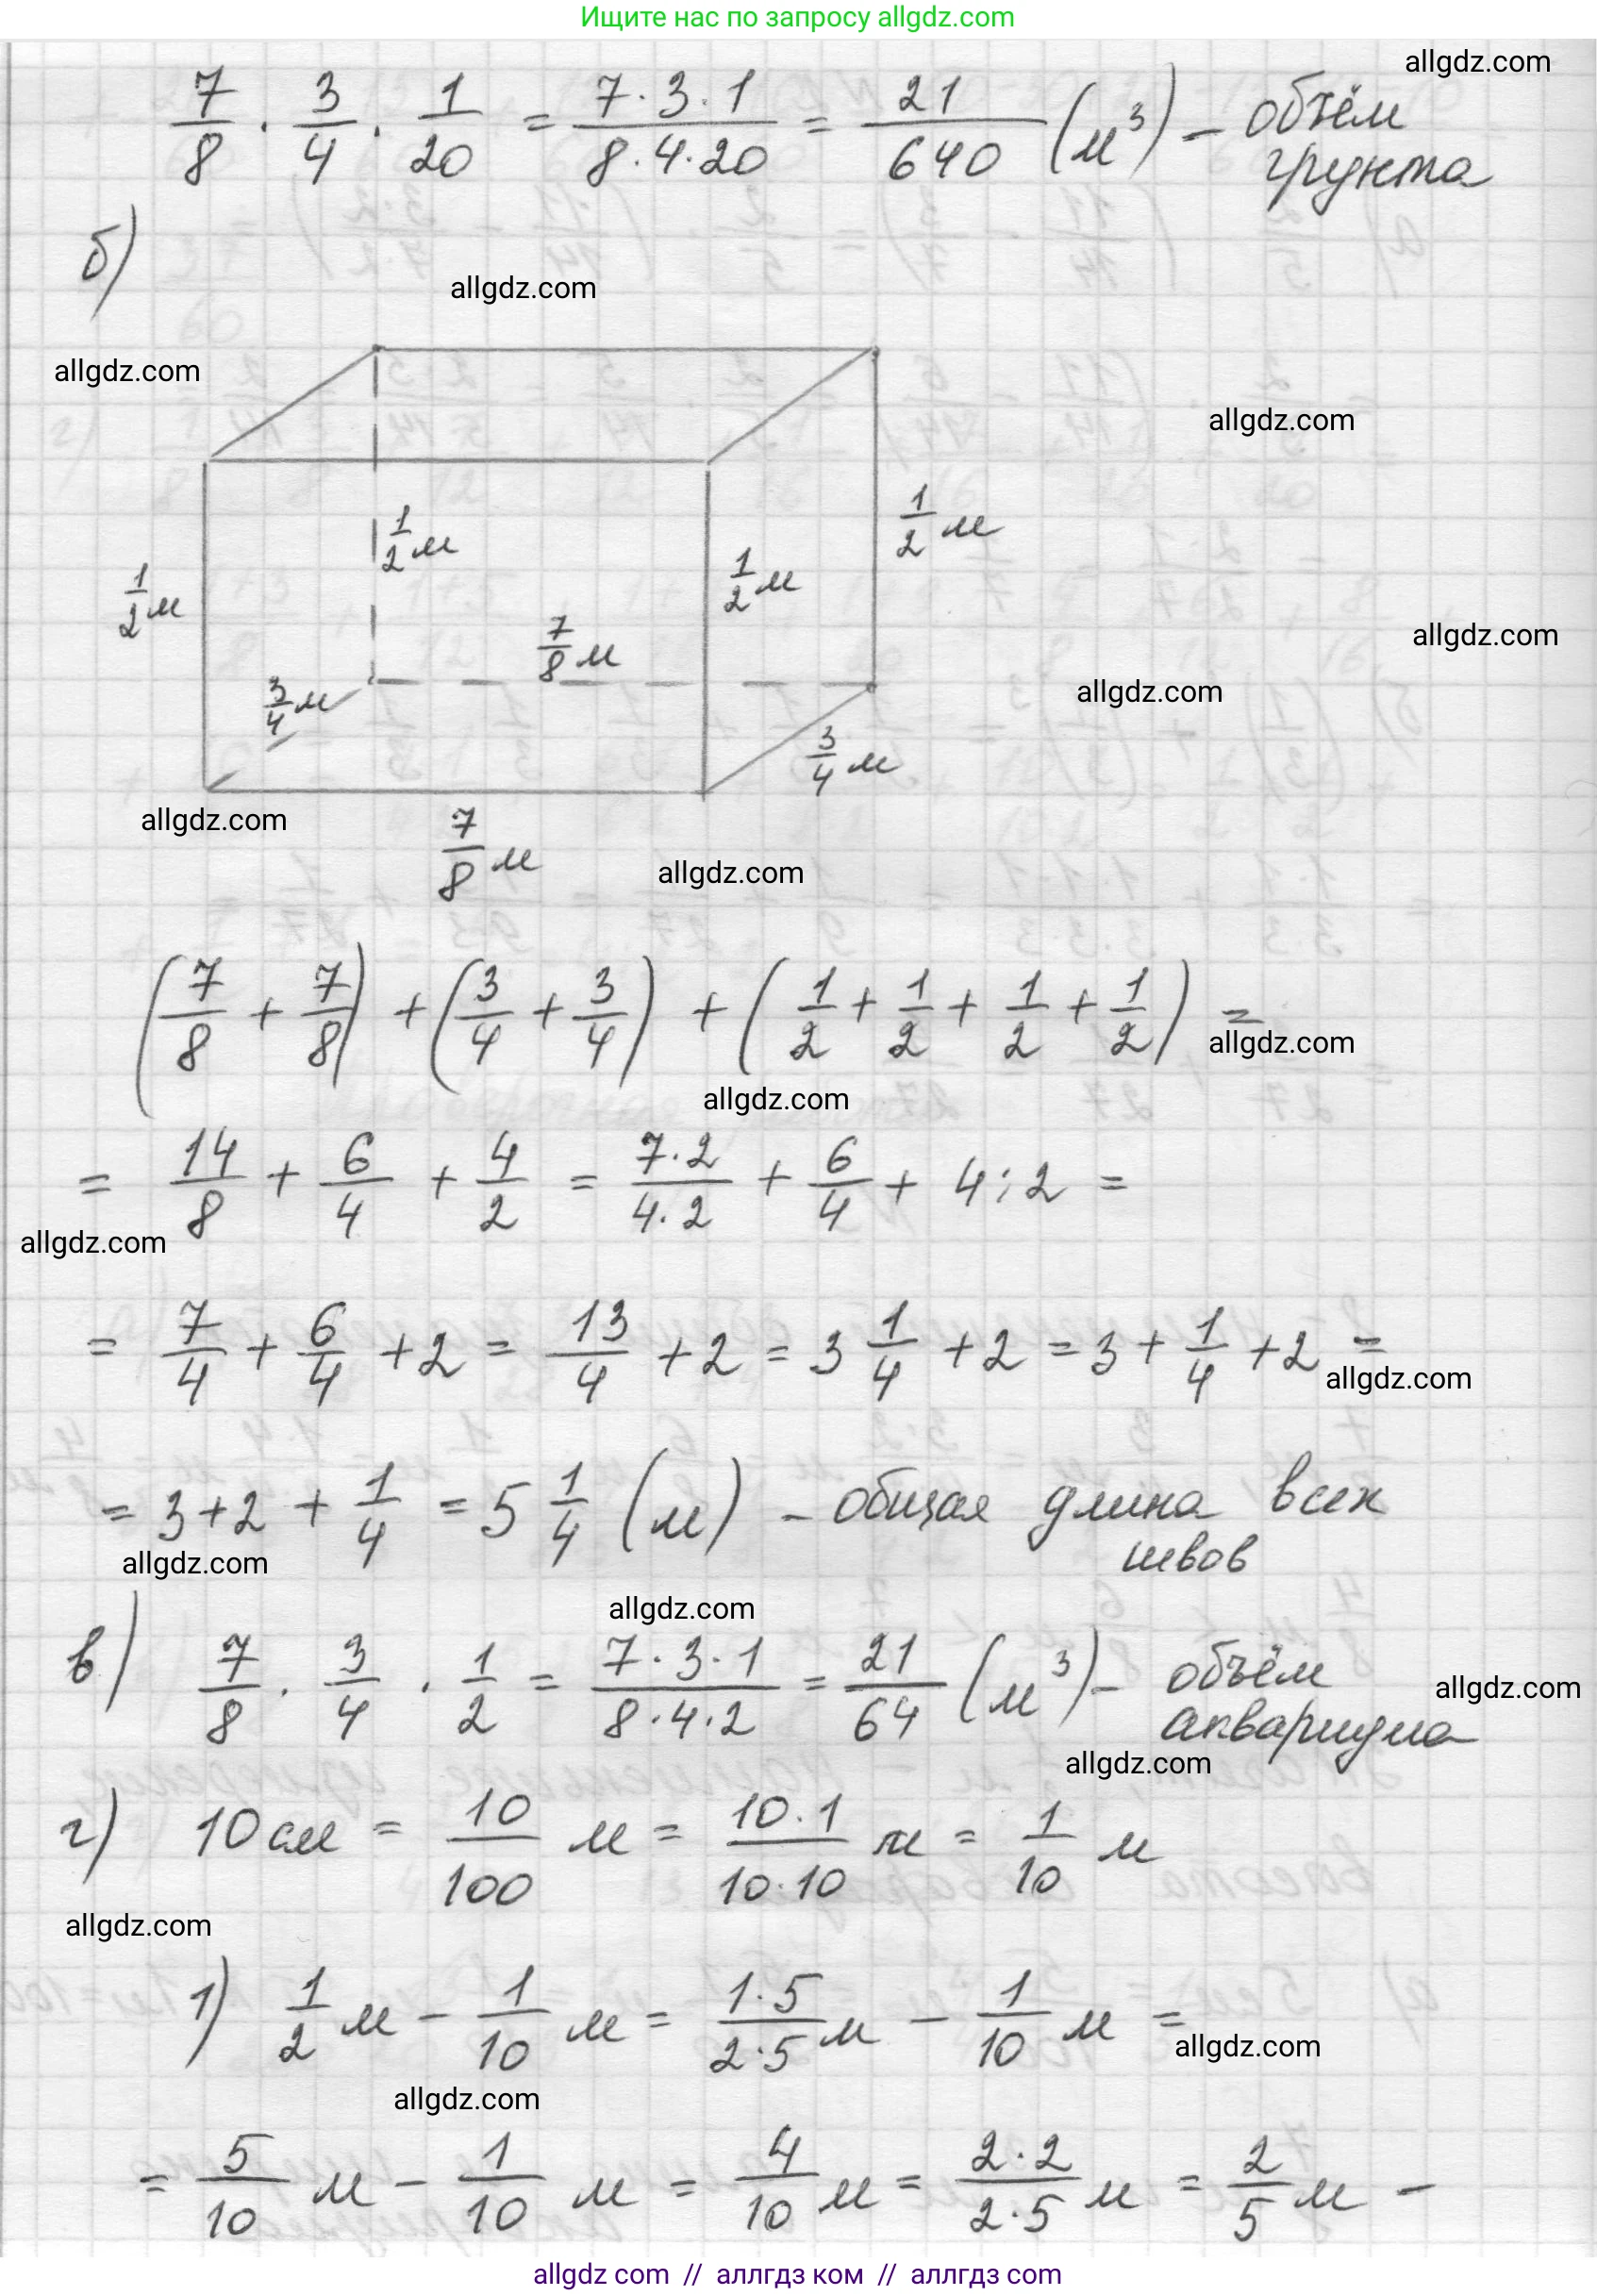 Ищите нас по запросу allgdz.com
allgdz.com
7/8 · 3/4 · 1/20 = 7·3·1/8·4·20 = 21/640 (м³) – объём
грунта
б)
allgdz.com
allgdz.com
allgdz.com
1/2 м
1/2 м
1/2 м
1/2 м
7/8 м
allgdz.com
3/4 м
allgdz.com
3/4 м
allgdz.com
7/8 м
allgdz.com
(7/8 + 7/8) + (3/4 + 3/4) + (1/2 + 1/2 + 1/2 + 1/2) =
allgdz.com
allgdz.com
= 14/8 + 6/4 + 4/2 = 7·2/4·2 + 6/4 + 4:2 =
allgdz.com
= 7/4 + 6/4 + 2 = 13/4 + 2 = 3 1/4 + 2 = 3 + 1/4 + 2 =
allgdz.com
= 3+2 + 1/4 = 5 1/4 (м) – общая длина всех
швов
allgdz.com
allgdz.com
в) 7/8 · 3/4 · 1/2 = 7·3·1/8·4·2 = 21/64 (м³) – объём
аквариума
allgdz.com
allgdz.com
г) 10 см = 10/100 м = 10·1/10·10 м = 1/10 м
allgdz.com
1) 1/2 м – 1/10 м = 1·5/2·5 м – 1/10 м =
allgdz.com
allgdz.com
= 5/10 м – 1/10 м = 4/10 м = 2·2/2·5 м = 2/5 м –
allgdz.com // аллгдз ком // аллгдз.com